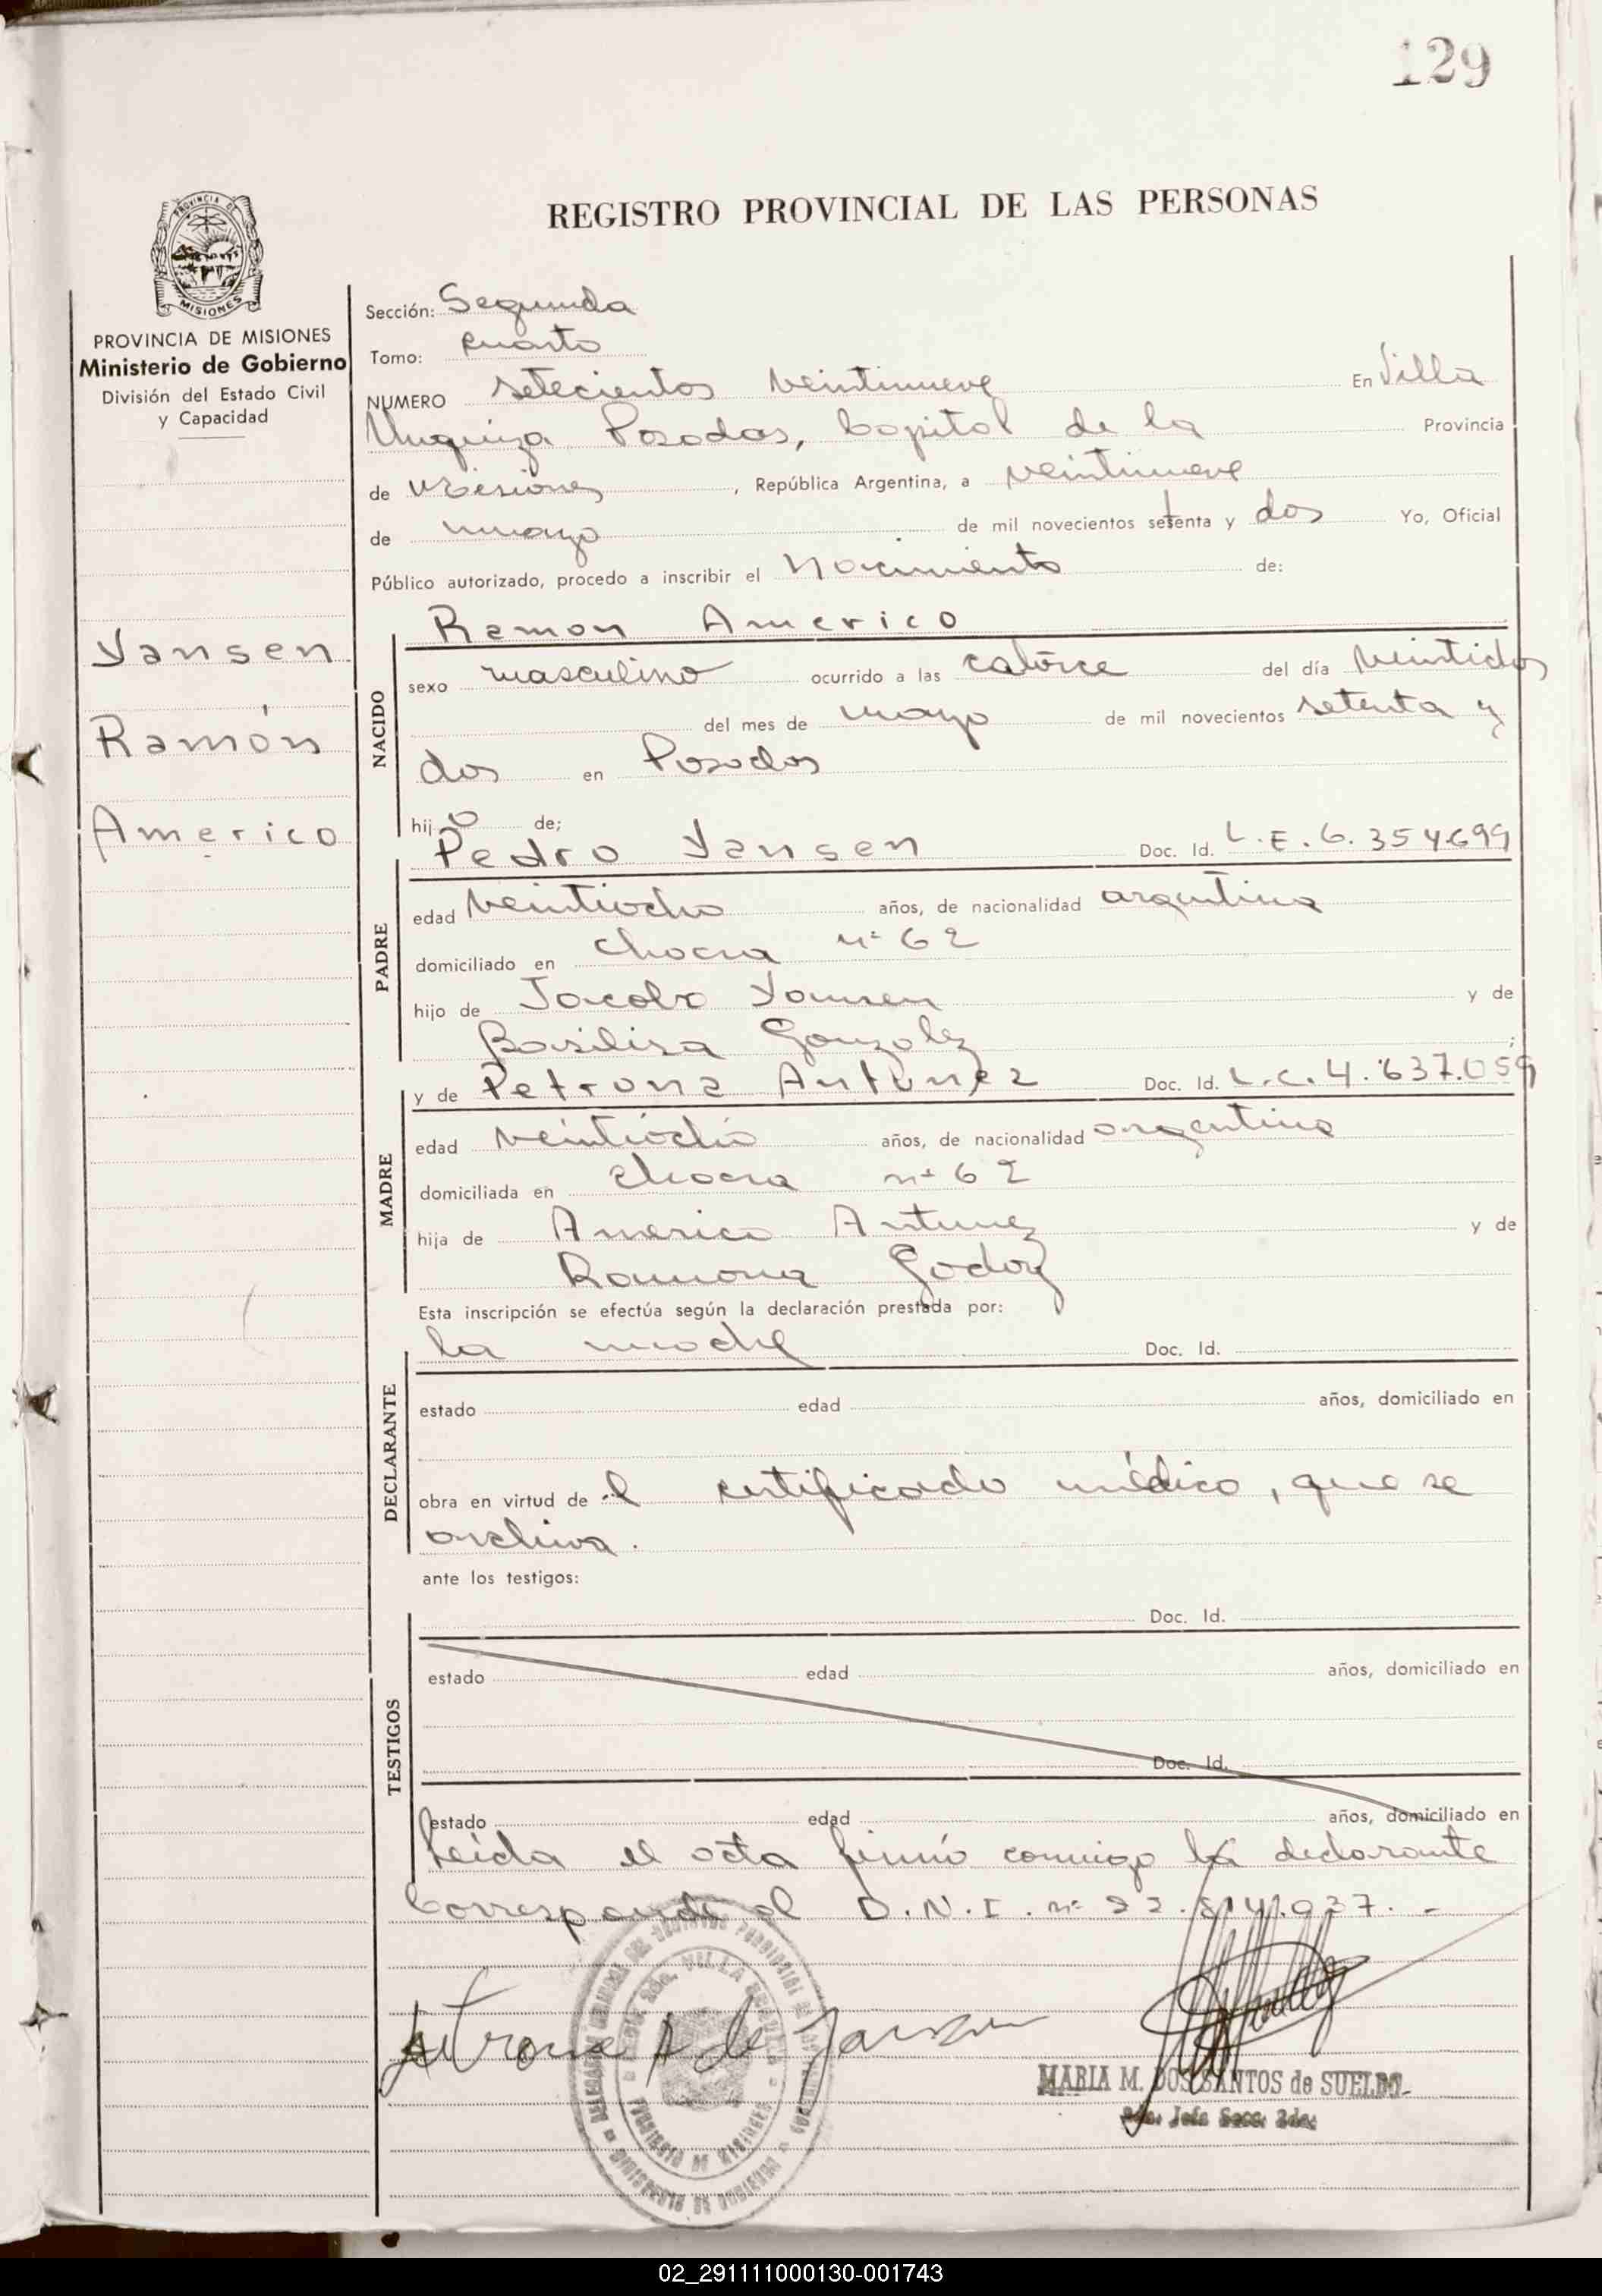 129
REGISTRO PROVINCIAL DE LAS PERSONAS
PROVINCIA DE
MISIONES
PROVINCIA DE MISIONES
Ministerio de Gobierno
División del Estado Civil
y Capacidad
Yansen
Ramón
Americo
Sección: Segunda
Tomo: cuarto
NUMERO setecientos veintinueve En Villa
Urquiza Posadas, Capital de la Provincia
de Misiones, República Argentina, a veintinueve
de mayo de mil novecientos setenta y dos Yo, Oficial
Público autorizado, procedo a inscribir el Nacimiento de:
Ramon Americo
NACIDO
sexo masculino ocurrido a las catorce del día veintidos
del mes de mayo de mil novecientos setenta y
dos en Posadas
hijo de;
Pedro Yansen Doc. Id. L.E. 6.354699
PADRE
edad veintiocho años, de nacionalidad argentina
domiciliado en chacra nº 62
hijo de Jacobo Yansen y de
Basilisa Gonzalez;
y de Petrona Antunez Doc. Id. L.C. 4.637.059
MADRE
edad veintiocho años, de nacionalidad argentina
domiciliada en chacra nº 62
hija de Americo Antunez y de
Ramona Godoy
Esta inscripción se efectúa según la declaración prestada por:
la madre Doc. Id.
DECLARANTE
estado edad años, domiciliado en
obra en virtud de el certificado médico, que se
archiva.
ante los testigos:
Doc. Id.
TESTIGOS
estado edad años, domiciliado en
Doc. Id.
estado edad años, domiciliado en
Leida el acta firmó conmigo la declarante
Corresponde al D.N.I. nº 22. .-
Petrona A de Jansen
MARIA M. DOS SANTOS de SUELDO
Jefa Secc. 2da.
02_291111000130-001743